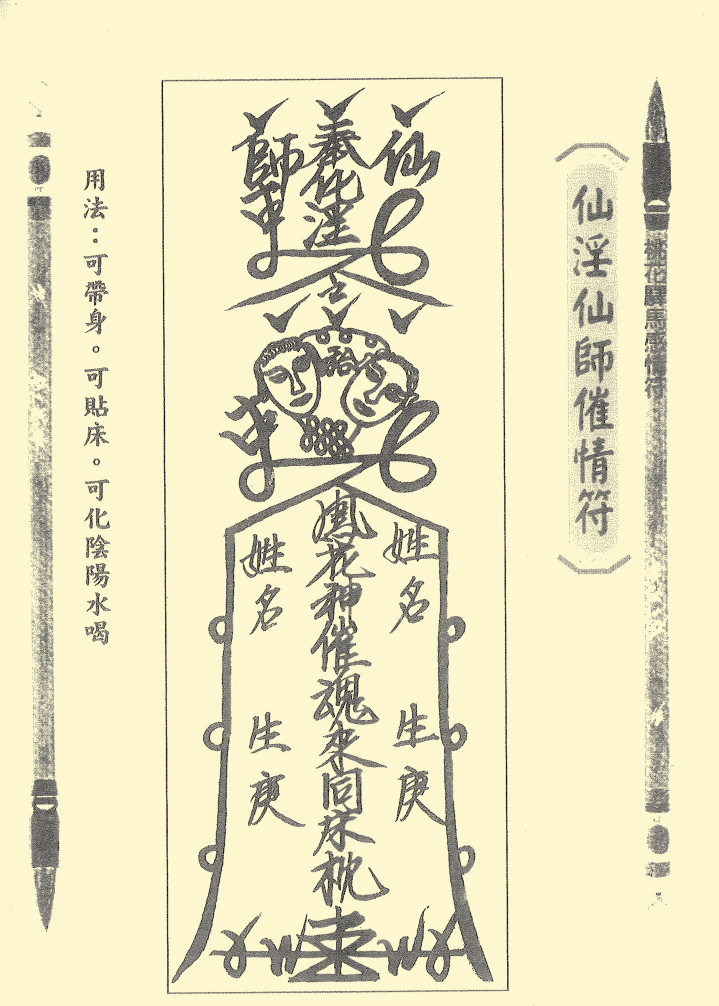 桃花驛馬感情符
仙淫仙師催情符
仙
奉化淫
師
合
姓名 生庚
鳳花神催魂來同床枕
姓名 生庚
用法：可帶身。可貼床。可化陰陽水喝